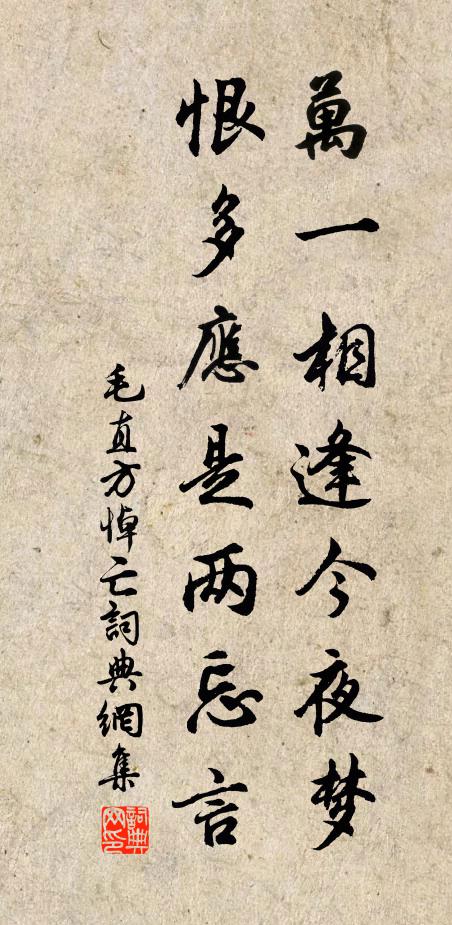 萬一相逢今夜梦
恨多應是两忘言
毛直方悼亡詞典網集
詞典网印